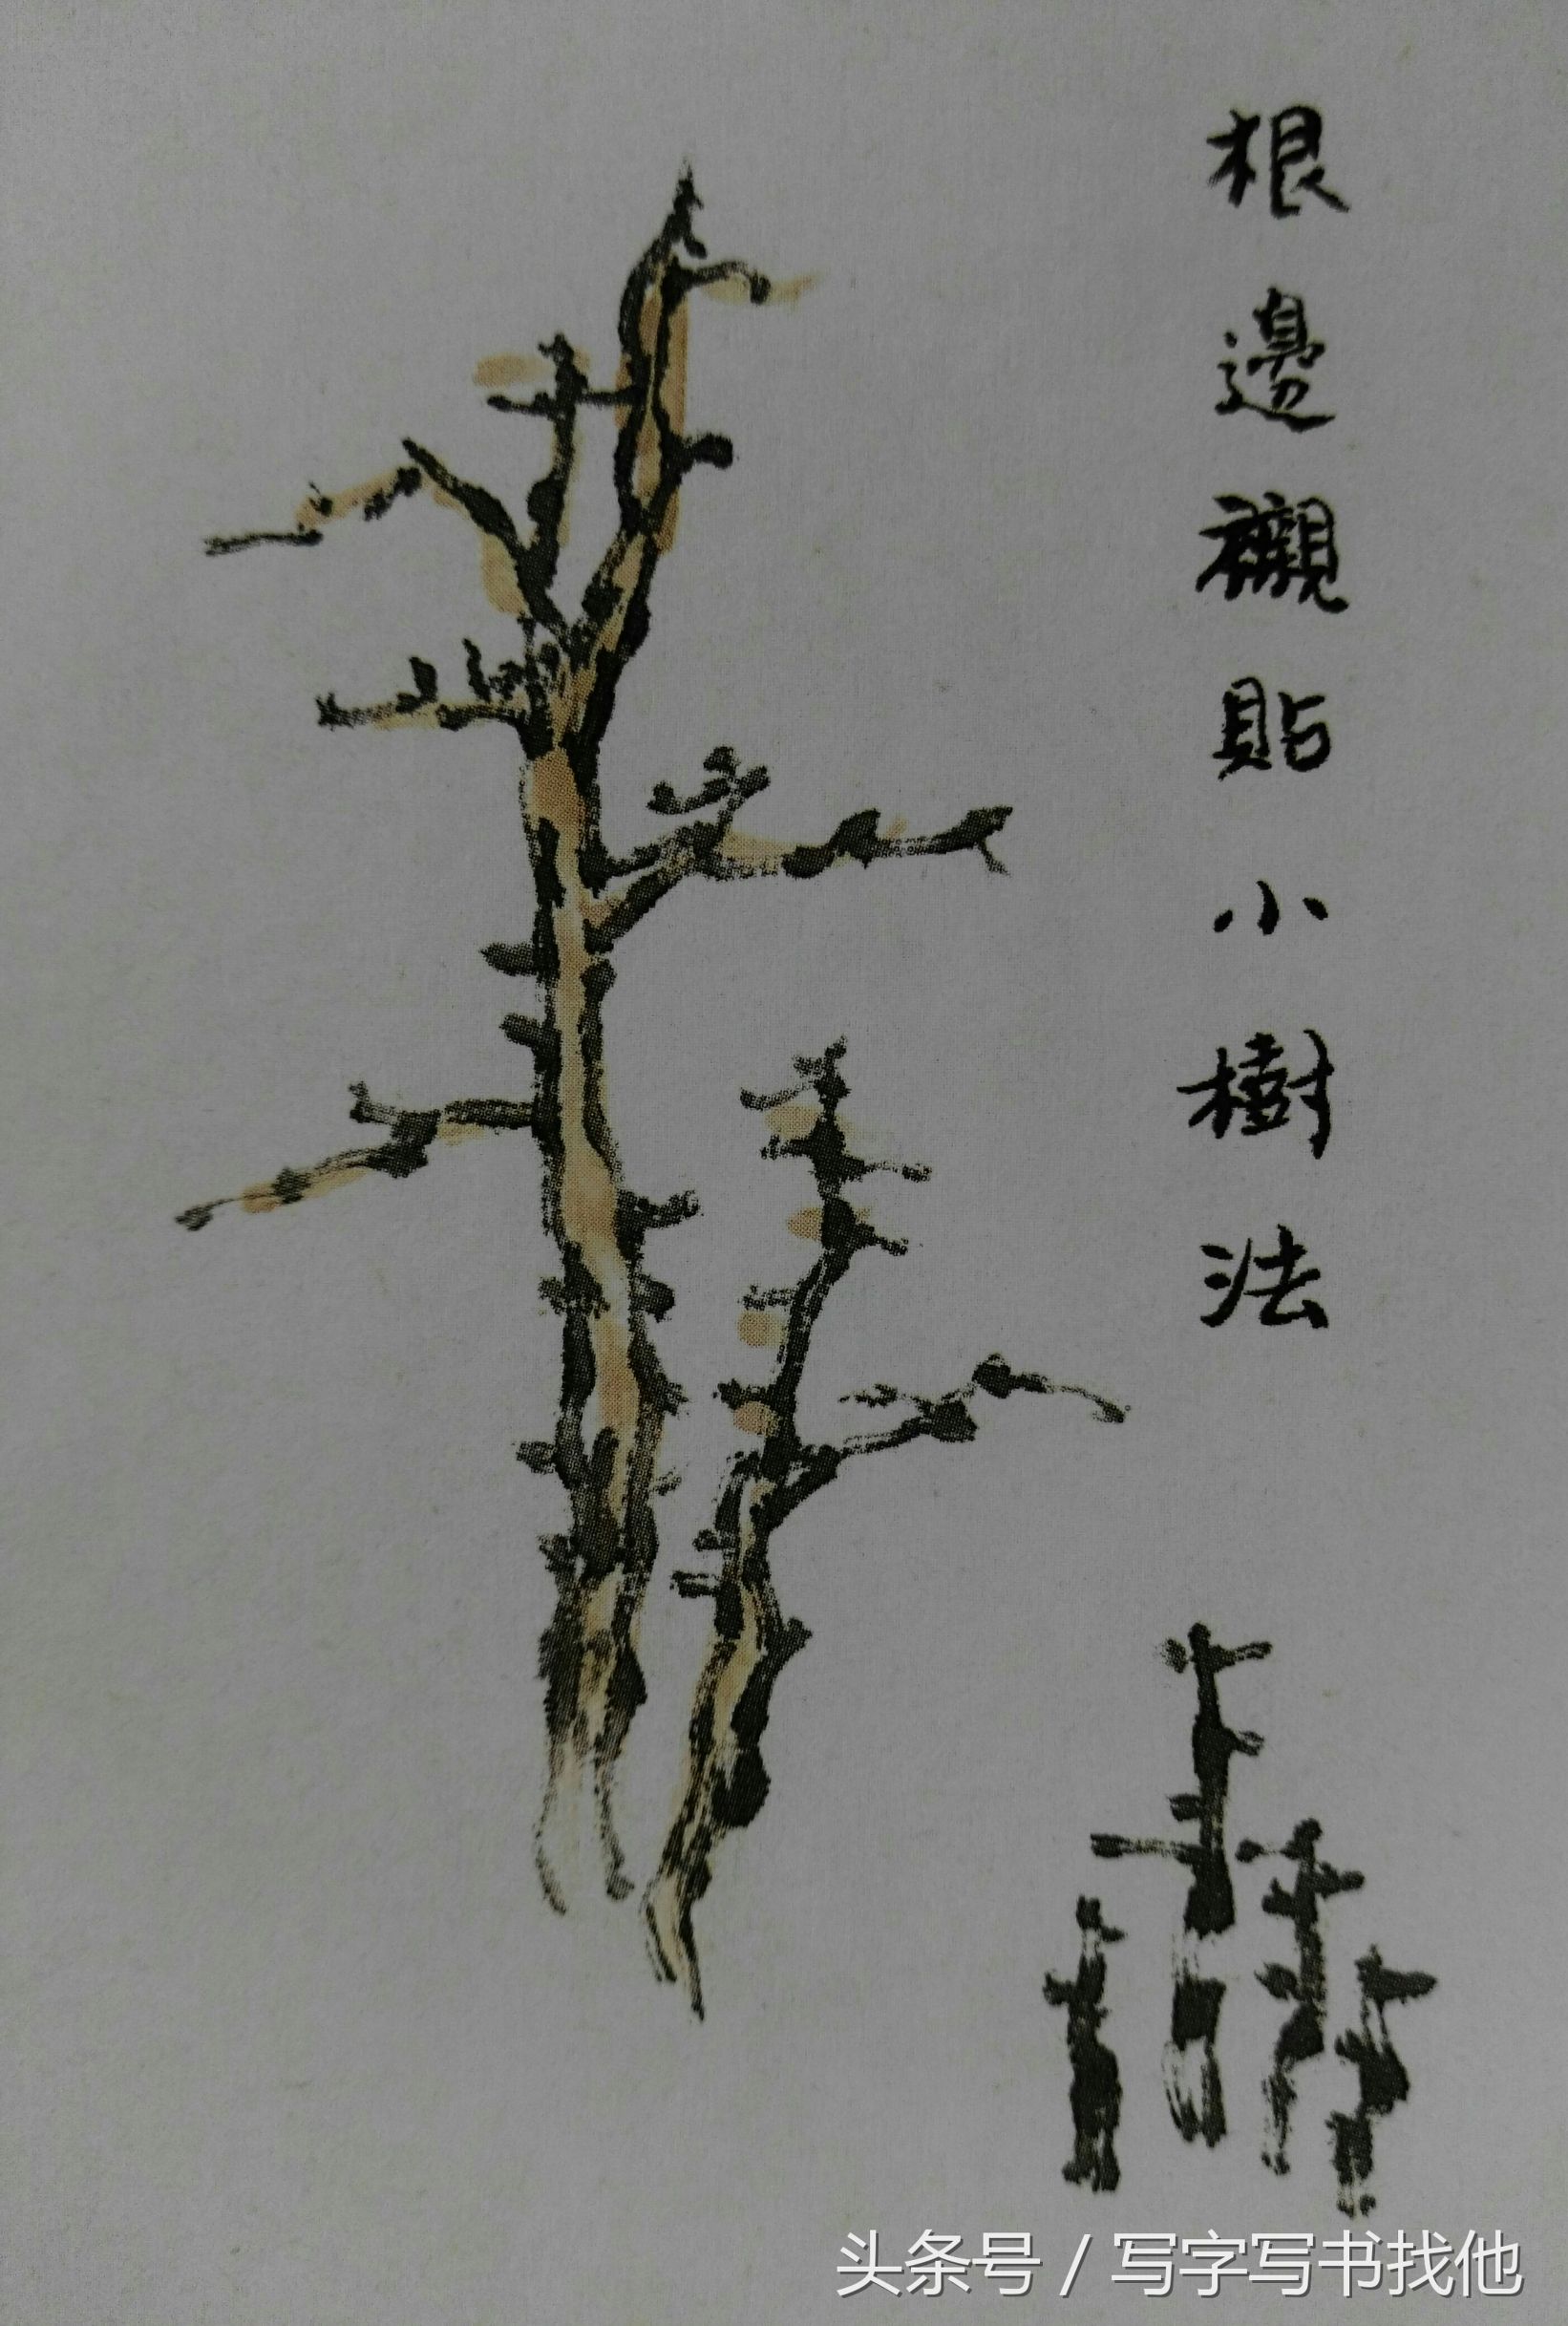 根邊襯貼小樹法
头条号 / 写字写书找他